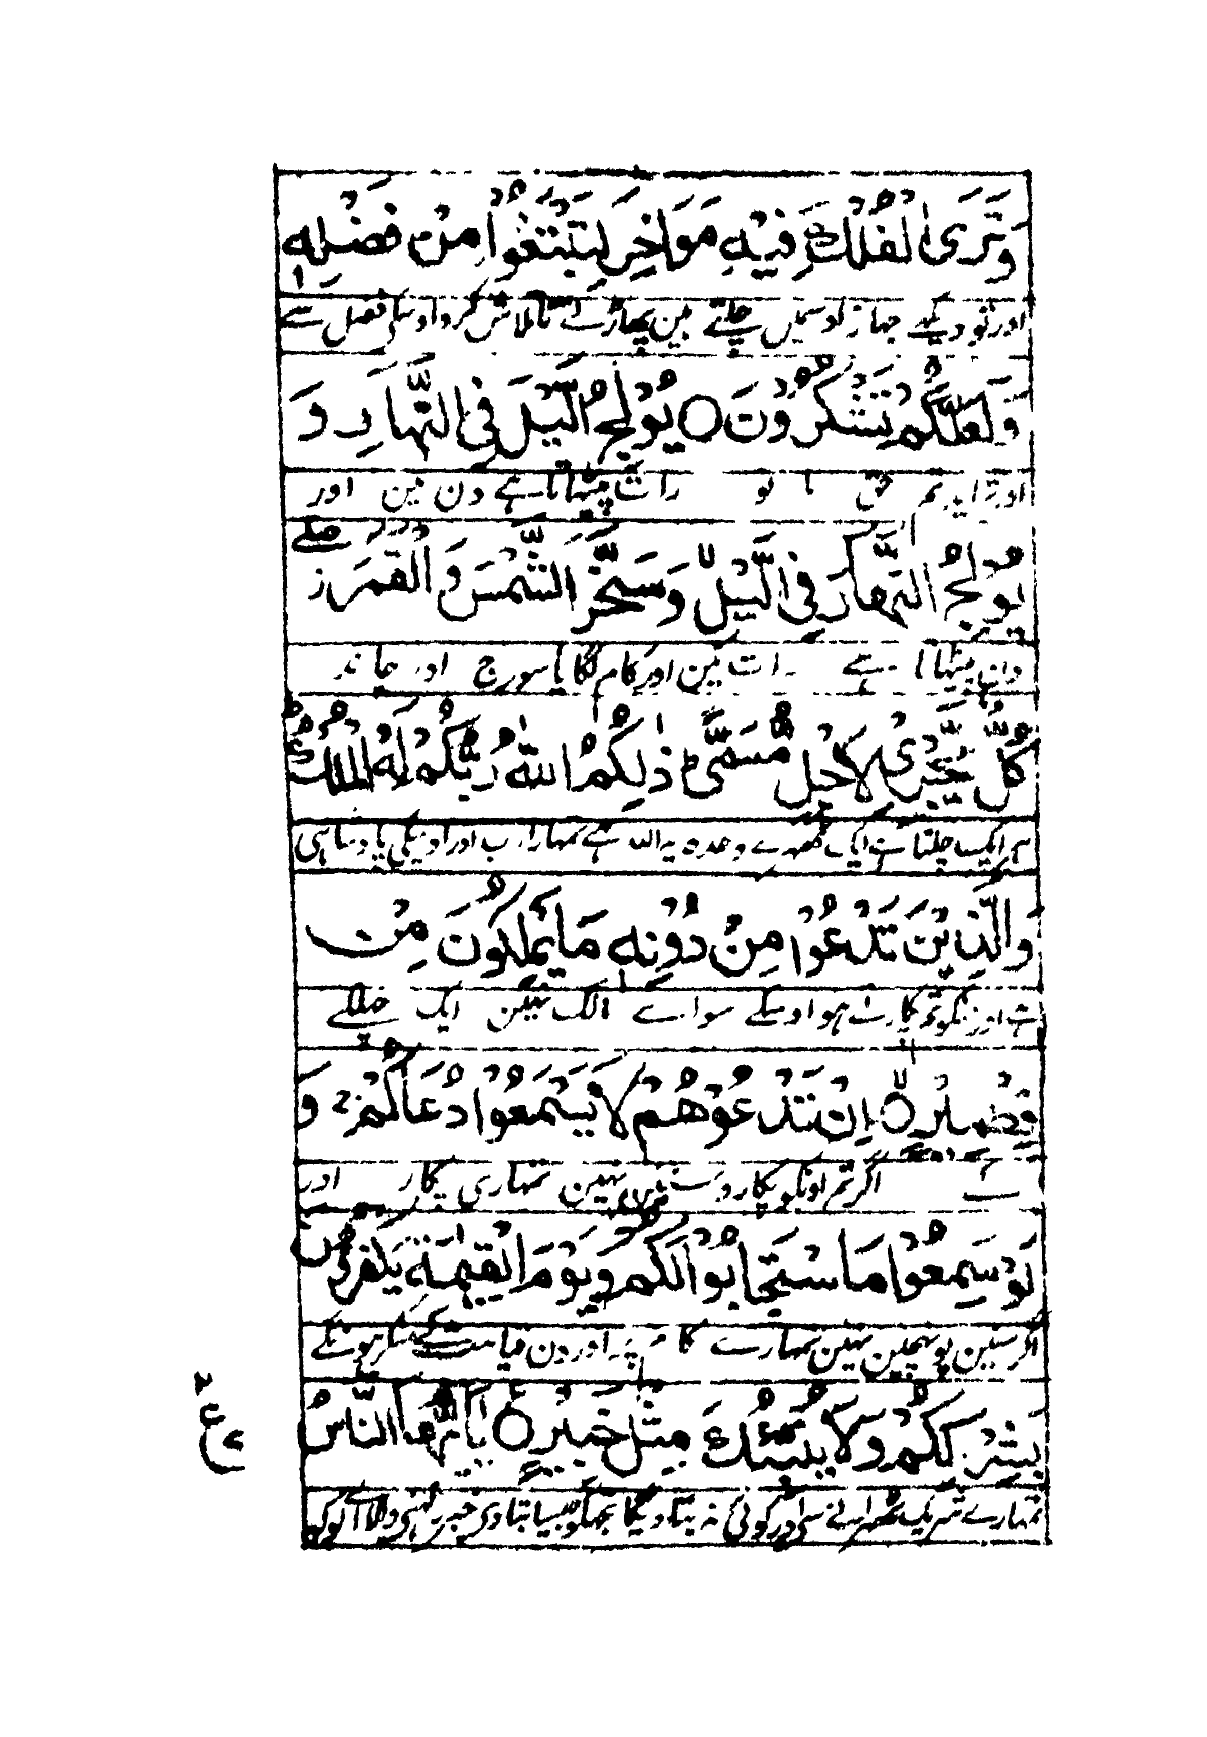 وَتَرَى الْفُلْكَ فِيهِ مَوَاخِرَ لِتَبْتَغُوا مِنْ فَضْلِهِ
اور تو دیکھے جہاز اوسمیں چلتے ہین پھاڑتے تا تلاش کرو اوسکے فضل سے
وَلَعَلَّكُمْ تَشْكُرُونَ ○ يُولِجُ الَّيْلَ فِي النَّهَارِ وَ
اور شاید تم حق مانو رات پیٹھاتا ہے دن مین اور
يُولِجُ النَّهَارَ فِي الَّيْلِ لا وَسَخَّرَ الشَّمْسَ وَالْقَمَرَ ز صلے
دن پیٹھاتا ہے رات مین اور کام لگایا سورج اور چاند
كُلٌّ يَّجْرِي لِأَجَلٍ مُّسَمًّى ط ذٰلِكُمُ اللّٰهُ رَبُّكُمْ لَهُ الْمُلْكُ ط
ہر ایک چلتا ہے ایک ٹھہرے وعدہ پر یہ اللہ ہے تمہارا رب اور اوسیکی پادشاہی
وَالَّذِينَ تَدْعُوْنَ مِنْ دُونِهِ مَا يَمْلِكُونَ مِنْ
ہے اور جنکو تم پکارتے ہو اوسکے سوائے مالک نہین ایک چھلکے
قِطْمِيرٍ ○ اِنْ تَدْعُوْهُمْ لَا يَسْمَعُوْا دُعَاءَكُمْ ج وَ
کے اگر تم اونکو پکارو سنین نہین تمہاری پکار اور
لَوْ سَمِعُوْا مَا اسْتَجَابُوْا لَكُمْ وَيَوْمَ الْقِيٰمَةِ يَكْفُرُوْنَ
اگر سنین پہنچین نہین تمہارے کام پر اور دن قیامت کے منکر ہونگے
بِشِرْكِكُمْ وَلَا يُنَبِّئُكَ مِثْلُ خَبِيرٍ ○ يَا أَيُّهَا النَّاسُ
تمہارے شریک ٹھہرانے سے اور کوئی نہ بتاویگا تجھکو جیسا بتاوے خبر رکھنے والا اے لوگو